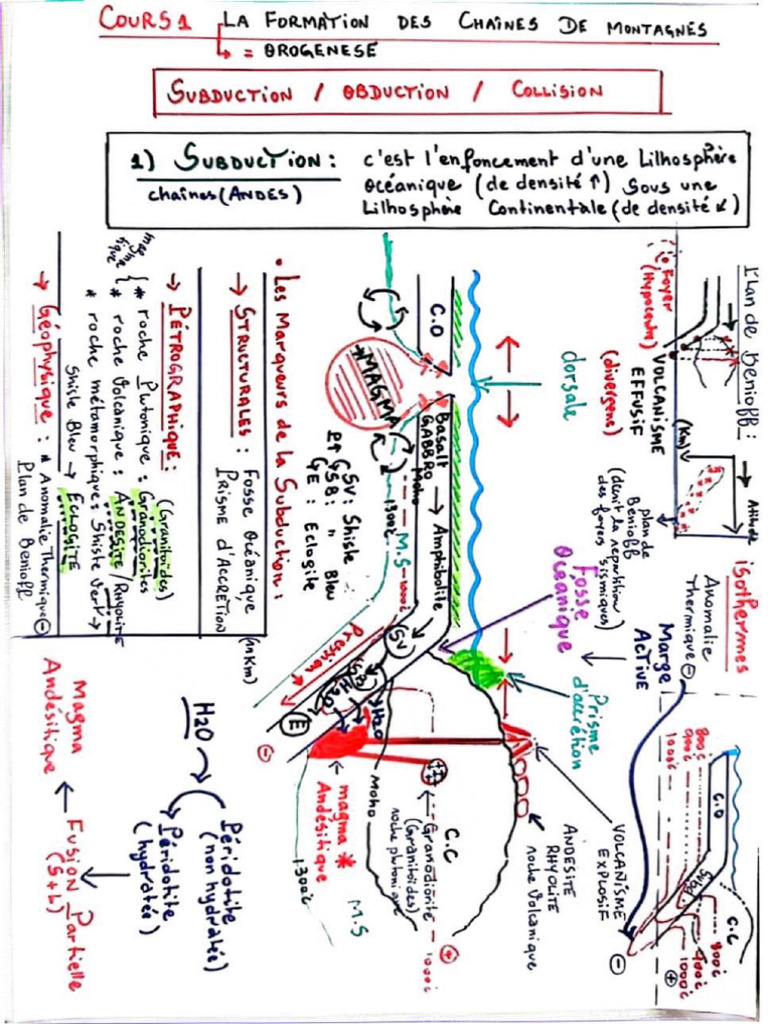 COURS 1 LA FORMATION DES CHAÎNES DE MONTAGNES
↳ = OROGENESE
SUBDUCTION / OBDUCTION / COLLISION
1) SUBDUCTION : c'est l'enfoncement d'une Lilhosphère
chaînes (ANDES) Océanique (de densité ↑) sous une
Lilhosphère Continentale (de densité ↙)
Plan de Benioff :
Foyer
(Hypocentre)
VOLCANISME
EFFUSIF
(divergene)
(Km)
Altitude
plan de
Benioff
(décrit la repartition
des foyers sismiques)
isothermes
Anomalie
Thermique ⊖
Marge
Active
800c
900c
1000c
C.O
Subd
C.C
800c
900c
1000c
⊕
⊖
dorsale
Fosse
Océanique
Prisme
d'accrétion
VOLCANISME
EXPLOSIF
ANDESITE
RHYOLITE
roche Volcanique
C.O
MAGMA
Basalt
GABBRO → Amphibolite
Moho
M.S
1000c
1300c
GSV: Shisle
GSB: " Bleu
GE : Eclogile
P↑
SV
H2O
E
H2O
Pression
⊖
Moho
C.C
Granodiorite
(Granitoïdes)
roche plutonique
1000c
⊕
magma *
Andésitique
M.S
1300c
• Les Marqueurs de la Subduction :
→ STRUCTURALES : Fosse Océanique (nKm)
PRISME D'ACCRÉTION
→ PÉTROGRAPHIQUE : (Granitoïdes)
* roche Plutonique : Granodiorites
* roche Volcanique : ANDÉSITE / Rhyolite
* roche métamorphique : Shiste Vert →
Shisle Bleu → ECLOGITE
→ Géophysique : * Anomalie Thermique ⊖
Plan de Benioff
H2O
Péridotite
(non hydratée)
Péridotite
(hydratée)
Fusion Partielle
(S+L)
Magma
Andésitique